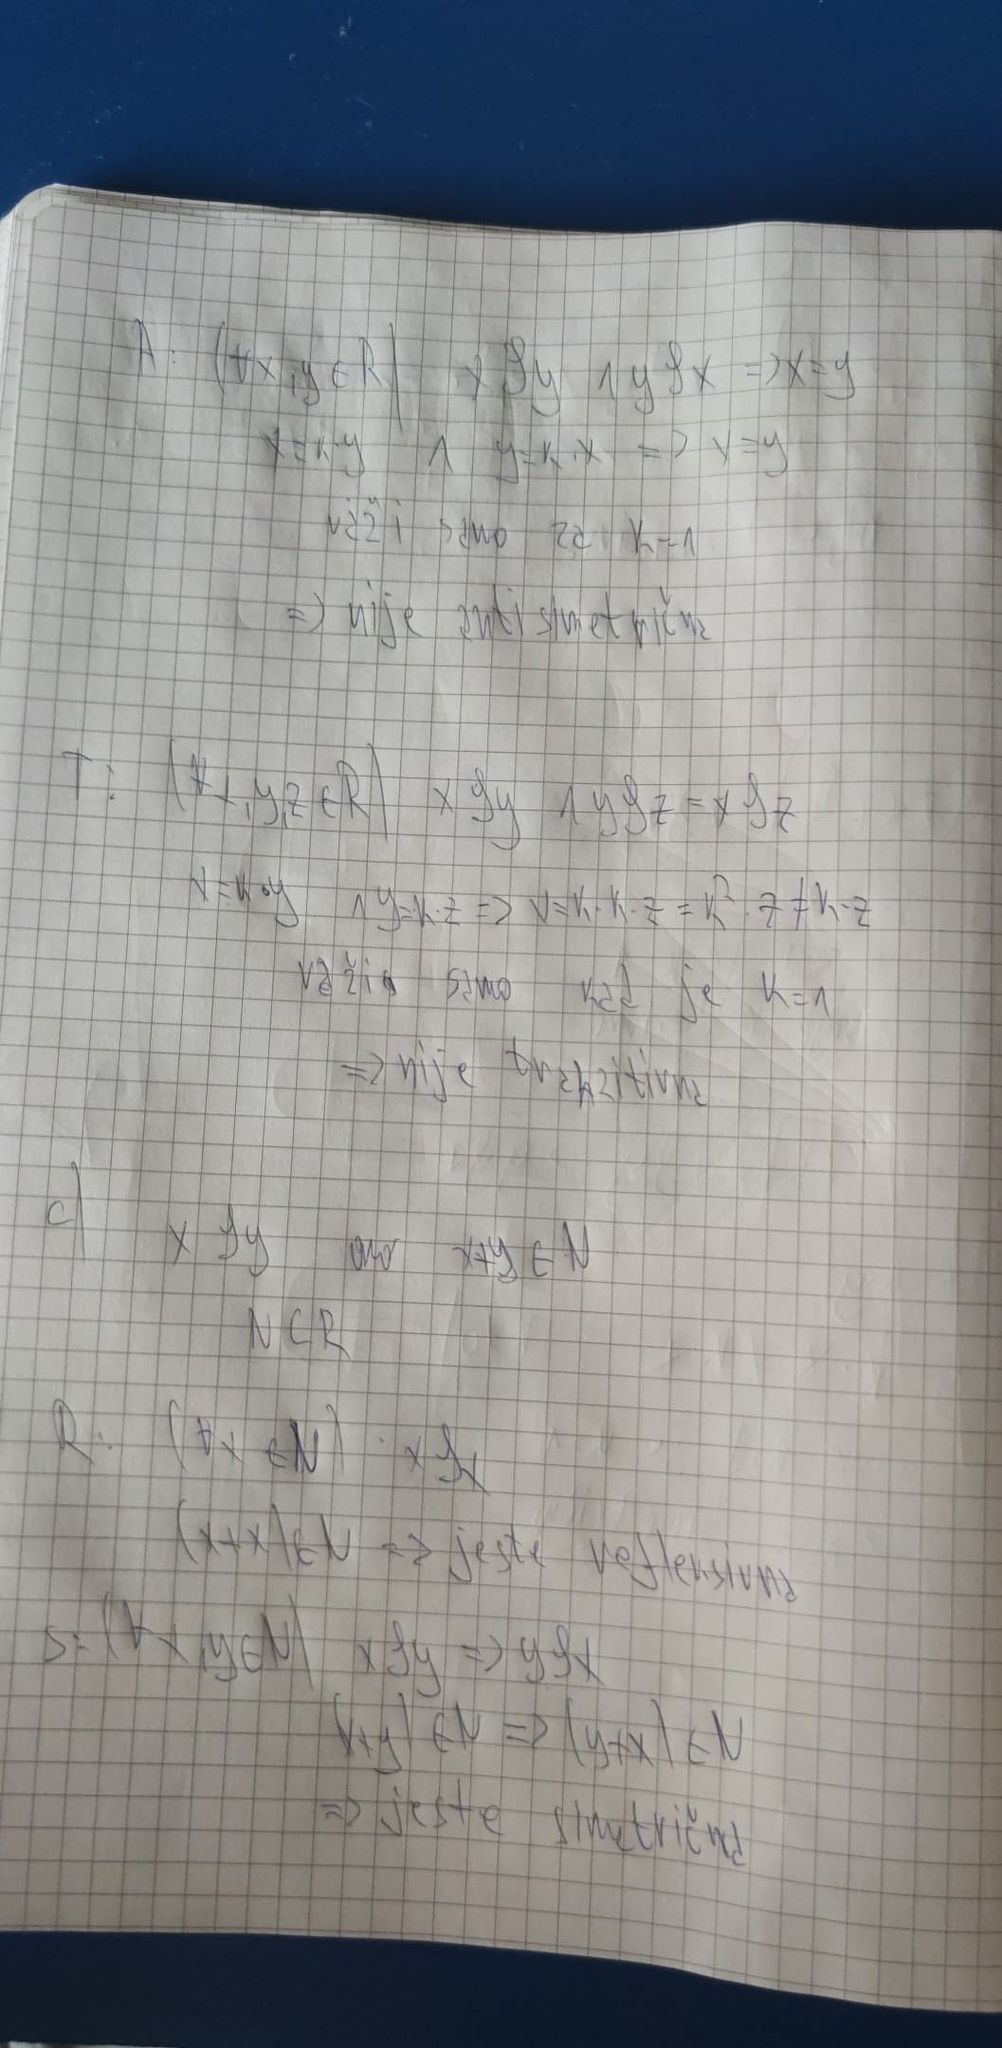 A: (∀x,y∈R) xρy ∧ yρx => x=y
x=k·y ∧ y=k·x => x=y
važi samo za k=1
=> nije antisimetrična
T: (∀x,y,z∈R) xρy ∧ yρz = xρz
x=k·y ∧ y=k·z => x=k·k·z = k²·z ≠ k·z
važi samo kad je k=1
=> nije tranzitivna
c) xρy akko x+y∈N
N⊂R
R: (∀x∈N) xρx
(x+x)∈N => jeste refleksivna
S: (∀x,y∈N) xρy => yρx
(x+y)∈N => (y+x)∈N
=> jeste simetrična